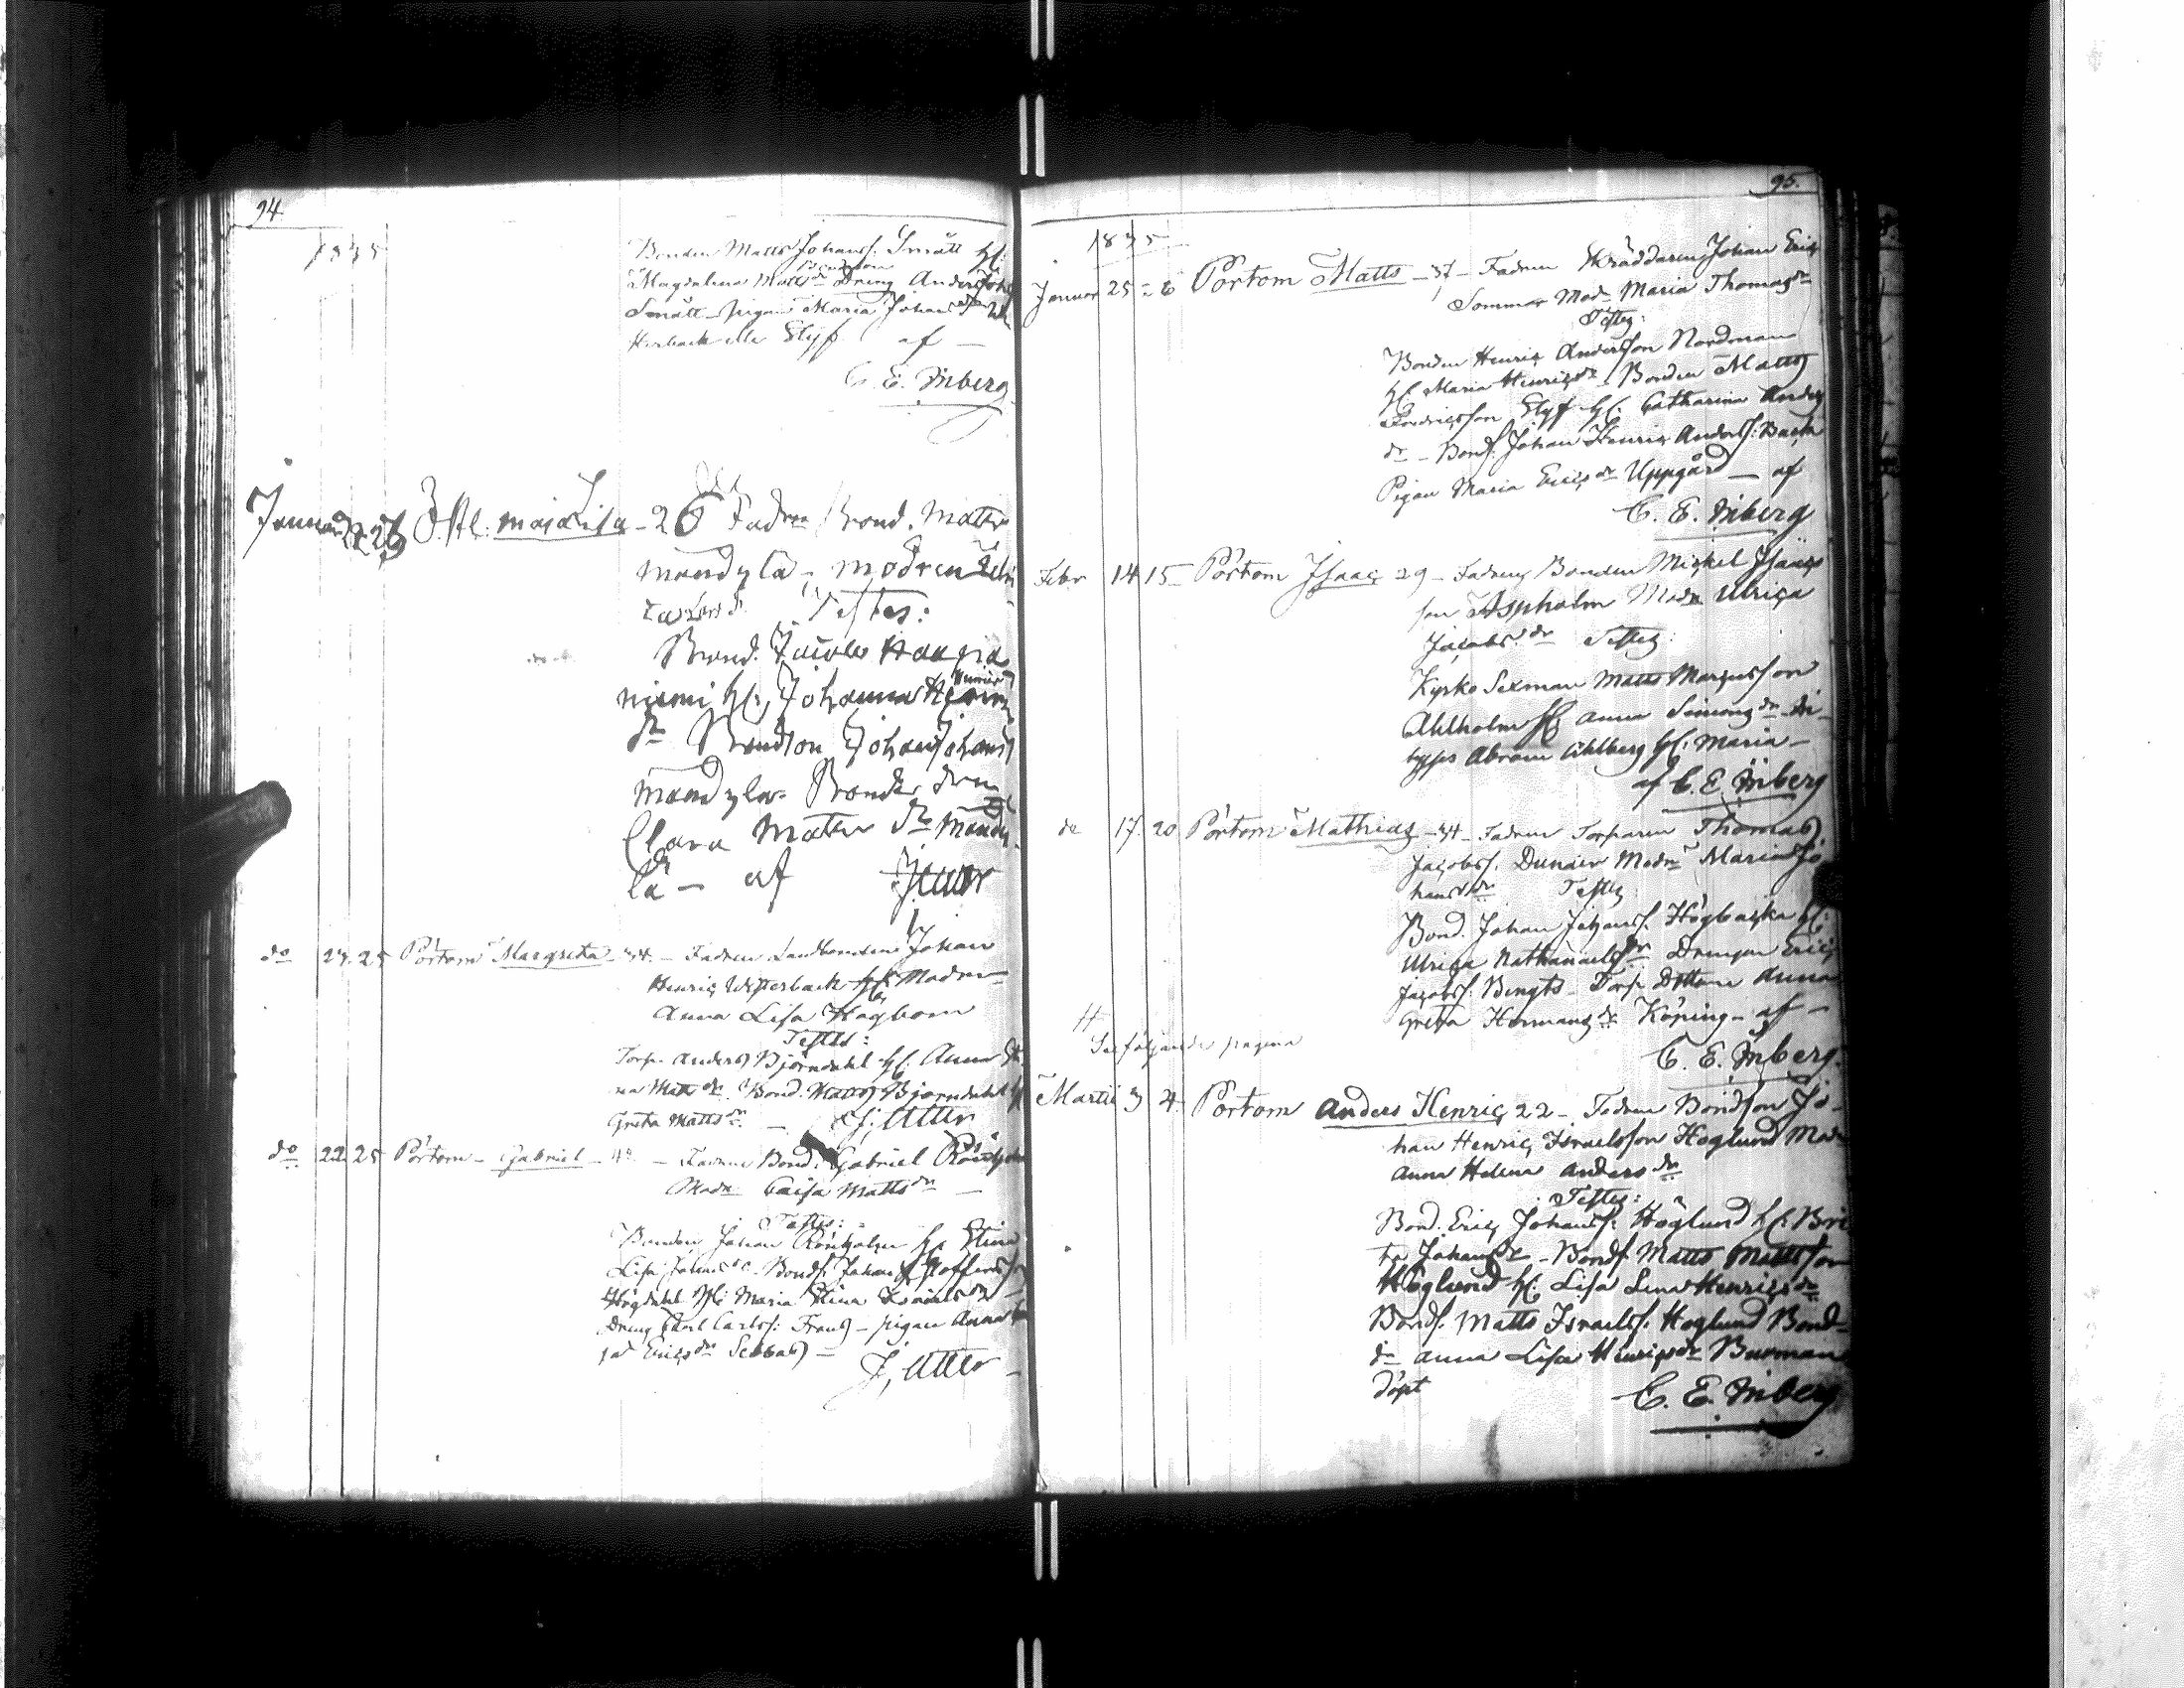 94.
1835
Bonden Matts Johansf. Smått hf.
Bondeson
Magdalena Matts dr Dreng Anders Joh
Smått pigan Maria Johans dr
eller Elgf af —
C. E. Inberg
Januar 25 26 Östl. maja Lisa - 26 Fadren Bond. Matts
mandyla - modren
Lars d. Testes:
Bond. Jacob Haapa
niemi hf. Johanna Henric
dr Bondson Johan Johans
mandyla Bonde
Clara Matts dr Mandy
la — af J. Utter
do 24. 25 Pörtom Margreta 34. — Fadren Landbonden Johan
Henric Westerback hf. Modren
Anna Lisa Hagbom
Testes:
Torp. Anders Björndahl hf. Anna
Matts dr. Bond. Matts Björndahl hf
Greta Matts dr — J. Utter
do 22. 25 Pörtom — Gabriel — 42 — Fadren Bond. Gabriel Rönholm
Modr. Caisa Matts dr —
Testes:
Bonden Johan Rönholm hf. Stina
Lisa Johans dr. Bondf. Johan Stoffersson
Högdahl hf. Maria Stina Israels dr
Dreng Carl Carlsf. Frants — pigan Anna
Erics dr Sebbas —
J. Utter —
95.
1835
Januar 25 = 6 Pörtom Matts — 37 — Fadren Skräddaren Johan Eric
Sommar Modr. Maria Thomas dr
Testes:
Bonden Henric Andersson Nordman
hf. Maria Henrics dr — Bonden Matts
Hendricsson Elgf hf. Catharina Anders
dr — Bondf. Johan Henric Andersf. Back
Pigan Maria Erics dr Uppgård — af
C. E. Inberg
Febr 14 15 Pörtom Isaac 29 — Fadren Bonden Mickel Isaacs
son Aspholm Modr. Ulrica
Jacobs dr Testes:
Kyrko Sexman Matts Marcusson
Ahlholm hf. Anna Simons dr
Abram Ahlberg hf. Maria —
af C. E. Inberg
do 17. 20 Pörtom Mathias — 34 — Fadren Torparen Thomas
Jacobsf. Dunair Modr. Maria Jo
hans dr Testes:
Bond. Johan Johansf. Högbacka hf:
Ulrica Nathanaels dr Drengen Eric
Jacobsf. Bengts — Torp. Dottern Anna
Greta Hermans dr Köping — af —
C. E. Inberg.
#
Se följande pagina
Martii 3 4. Pörtom Anders Henric 22 — Fadren Bondson Jo
han Henric Israelsson Höglund Modr
Anna Helena Anders dr
Testes:
Bond. Eric Johansf. Höglund hf. Bri
ta Johans dr — Bondf. Matts Mattsson
Höglund hf. Lisa Lena Henrics dr
Bondf. Matts Israelsf. Höglund Bond
dr Anna Lisa Henrics dr Burman
döpt C. E. Inberg